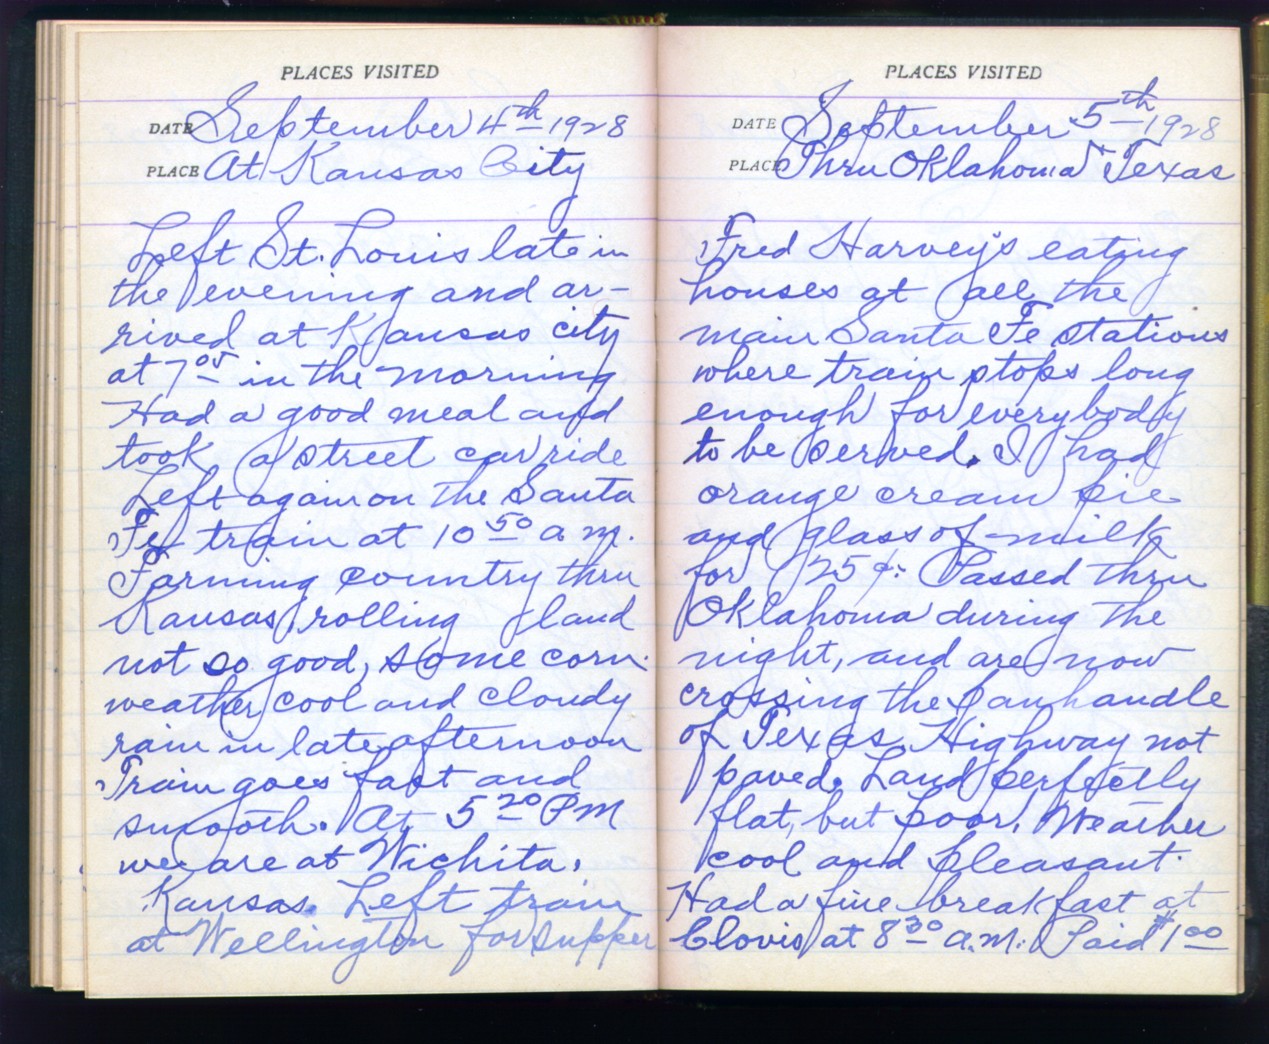 PLACES VISITED
DATE September 4th 1928
PLACE At Kansas City
Left St. Louis late in
the evening and ar-
rived at Kansas city
at 7 05 in the morning
Had a good meal and
took a street car ride
Left again on the Santa
Fe train at 10 50 a m.
Farming country thru
Kansas, rolling land
not so good, some corn.
weather cool and cloudy
rain in late afternoon
Train goes fast and
smooth. At 5 20 PM
we are at Wichita,
Kansas. Left train
at Wellington for supper
PLACES VISITED
DATE September 5th 1928
PLACE Thru Oklahoma + Texas
Fred Harvey's eating
houses at all the
main Santa Fe stations
where train stops long
enough for everybody
to be served. I had
orange cream pie
and glass of milk
for 25¢. Passed thru
Oklahoma during the
night, and are now
crossing the panhandle
of Texas. Highway not
paved. Land perfectly
flat, but poor. Weather
cool and pleasant.
Had a fine breakfast at
Clovis at 8 30 a.m. Paid $1 00